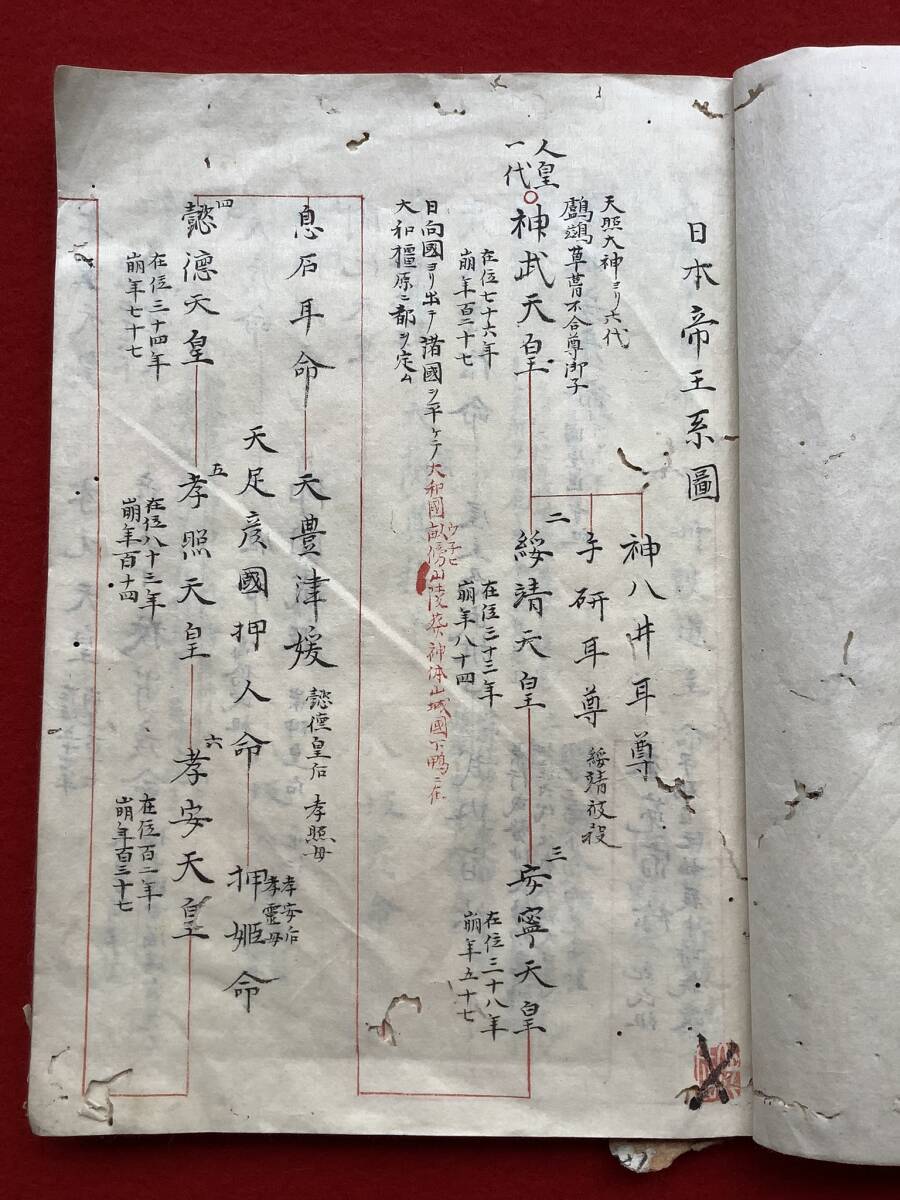 日本帝王系圖
天照大神ヨリ六代
鸕鷀草葺不合尊御子
人皇
一代
神武天皇
在位七十六年
崩年百二十七
日向國ヨリ出テ諸國ヲ平ケテ大和國畝傍山陵葬神体山城國下鴨ニ在
ウ子ヒ
大和橿原ニ都ヲ定ム
神八井耳尊
手研耳尊 綏靖被殺
二
綏靖天皇
在位三十三年
崩年八十四
三
安寧天皇
在位三十八年
崩年五十七
息石耳命
天豊津媛 懿德皇后 孝照母
四
懿德天皇
在位三十四年
崩年七十七
天足彦國押人命
押姫命
孝安后
孝霊母
五
孝照天皇
在位八十三年
崩年百十四
六
孝安天皇
在位百二年
崩年百三十七